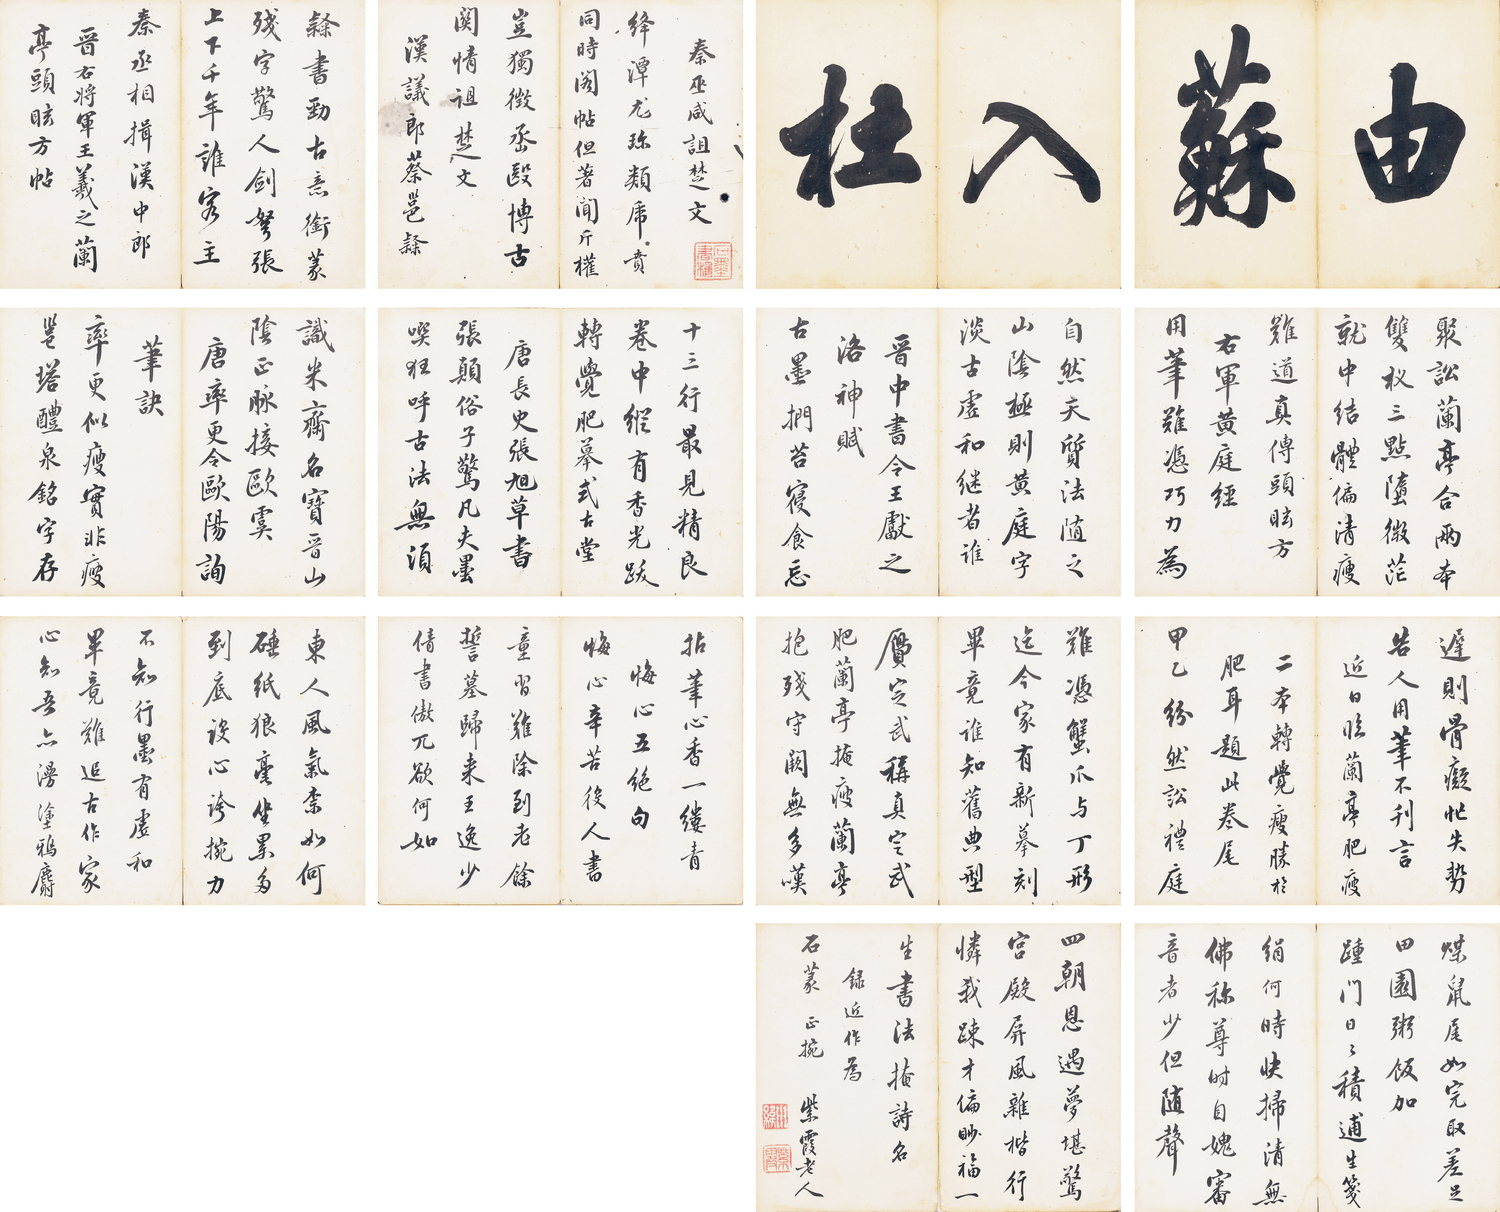 由
蘇
入
杜
秦巫咸詛楚文
絳潭尤珎類席賁
同時閣帖但著聞斤權
豈獨徵丞毆博古
関情祖楚文
漢議郎蔡邕隸
隸書勁古意銜篆
殘字驚人劍弩張
上下千年誰客主
秦丞相揖漢中郎
晉右將軍王羲之蘭
亭頭眩方帖
聚訟蘭亭合兩本
雙松三點墮微茫
就中結體偏清瘦
難道真傳頭眩方
右軍黃庭經
用筆難憑巧力為
自然天質法随之
山陰極則黃庭字
淡古虛和继者誰
晉中書令王獻之
洛神賦
古墨捫苔寢食忘
十三行最見精良
卷中縱有香光跋
轉覺肥摹式古堂
唐長史張旭草書
張顛俗子驚凡夫墨
噀狂呼古法無須
識米齋名寶晉山
陰正脉接歐虞
唐率更令歐陽詢
筆訣
率更似瘦實非瘦
邕塔醴泉銘字存
遲則骨癡忙失勢
告人用筆不刊言
近日臨蘭亭肥瘦
二本轉覺瘦勝於
肥耳題此卷尾
甲乙紛然訟禮庭
難憑蟹爪与丁形
迄今家有新摹刻
畢竟誰知舊典型
贋定武稱真定武
肥蘭亭掩瘦蘭亭
抱殘守闕無多嘆
拈筆心香一縷青
悔心五絕句
悔心辛苦役人書
童習難除到老餘
誓墓歸来王逸少
倩書傲兀欲何如
東人風氣柰如何
硾紙狼毫坐累多
到底設心誇捥力
不知行墨有虛和
畢竟難追古作家
心知吾亦漫塗鴉麝
煤鼠尾如完取差足
田園粥飯加
踵門日〻積逋生箋
絹何時快掃清無
佛称尊时自媿審
音者少但随聲
四朝恩遇夢堪驚
宮殿屏風雜楷行
憐我踈才偏眇福一
生書法掩詩名
録近作為
石篆正捥
紫霞老人